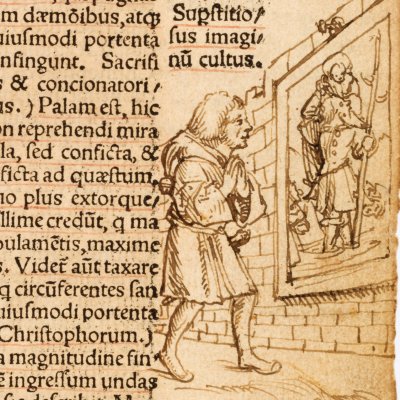 m dæmōibus, atq;
uiusmodi portenta
onfingunt. Sacrifi
s & concionatori/
us. ) Palam est, hic
on reprehendi mira
la, sed conficta, &
ficta ad quæstum,
io plus extorque/
illime credūt, q ma
bulamētis, maxime
s. Videt aūt taxare
q circūferentes san
uiusmodi portenta
Christophorum.)
a magnitudine fin
ē ingressum undas
Supstitio/
sus imagi/
nū cultus.